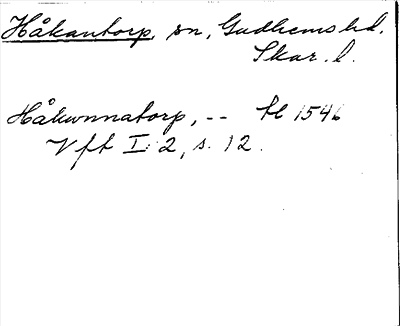 Håkantorp, sn, Gudhems hd,
Skar. l.
Håkwnnatorp, -- tl 1546
Vft I:2, s. 12.